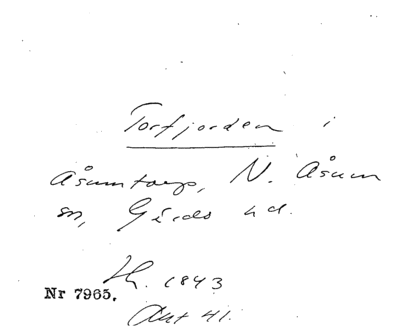 Torfjorden i
Åsumtorp, N. Åsum
sn, Gärds hd.
Lh. 1843
Nr 7965.
Akt 41.